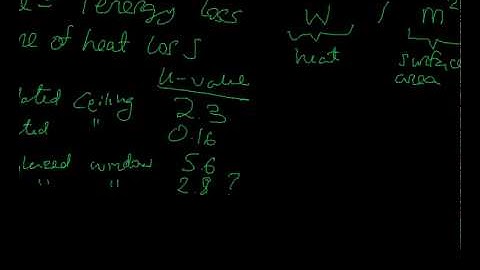 energy loss W / m²
of heat loss heat surface
area
U-value
ated Ceiling 2.3
ted " 0.16
window 5.6
" " 2.8 ?